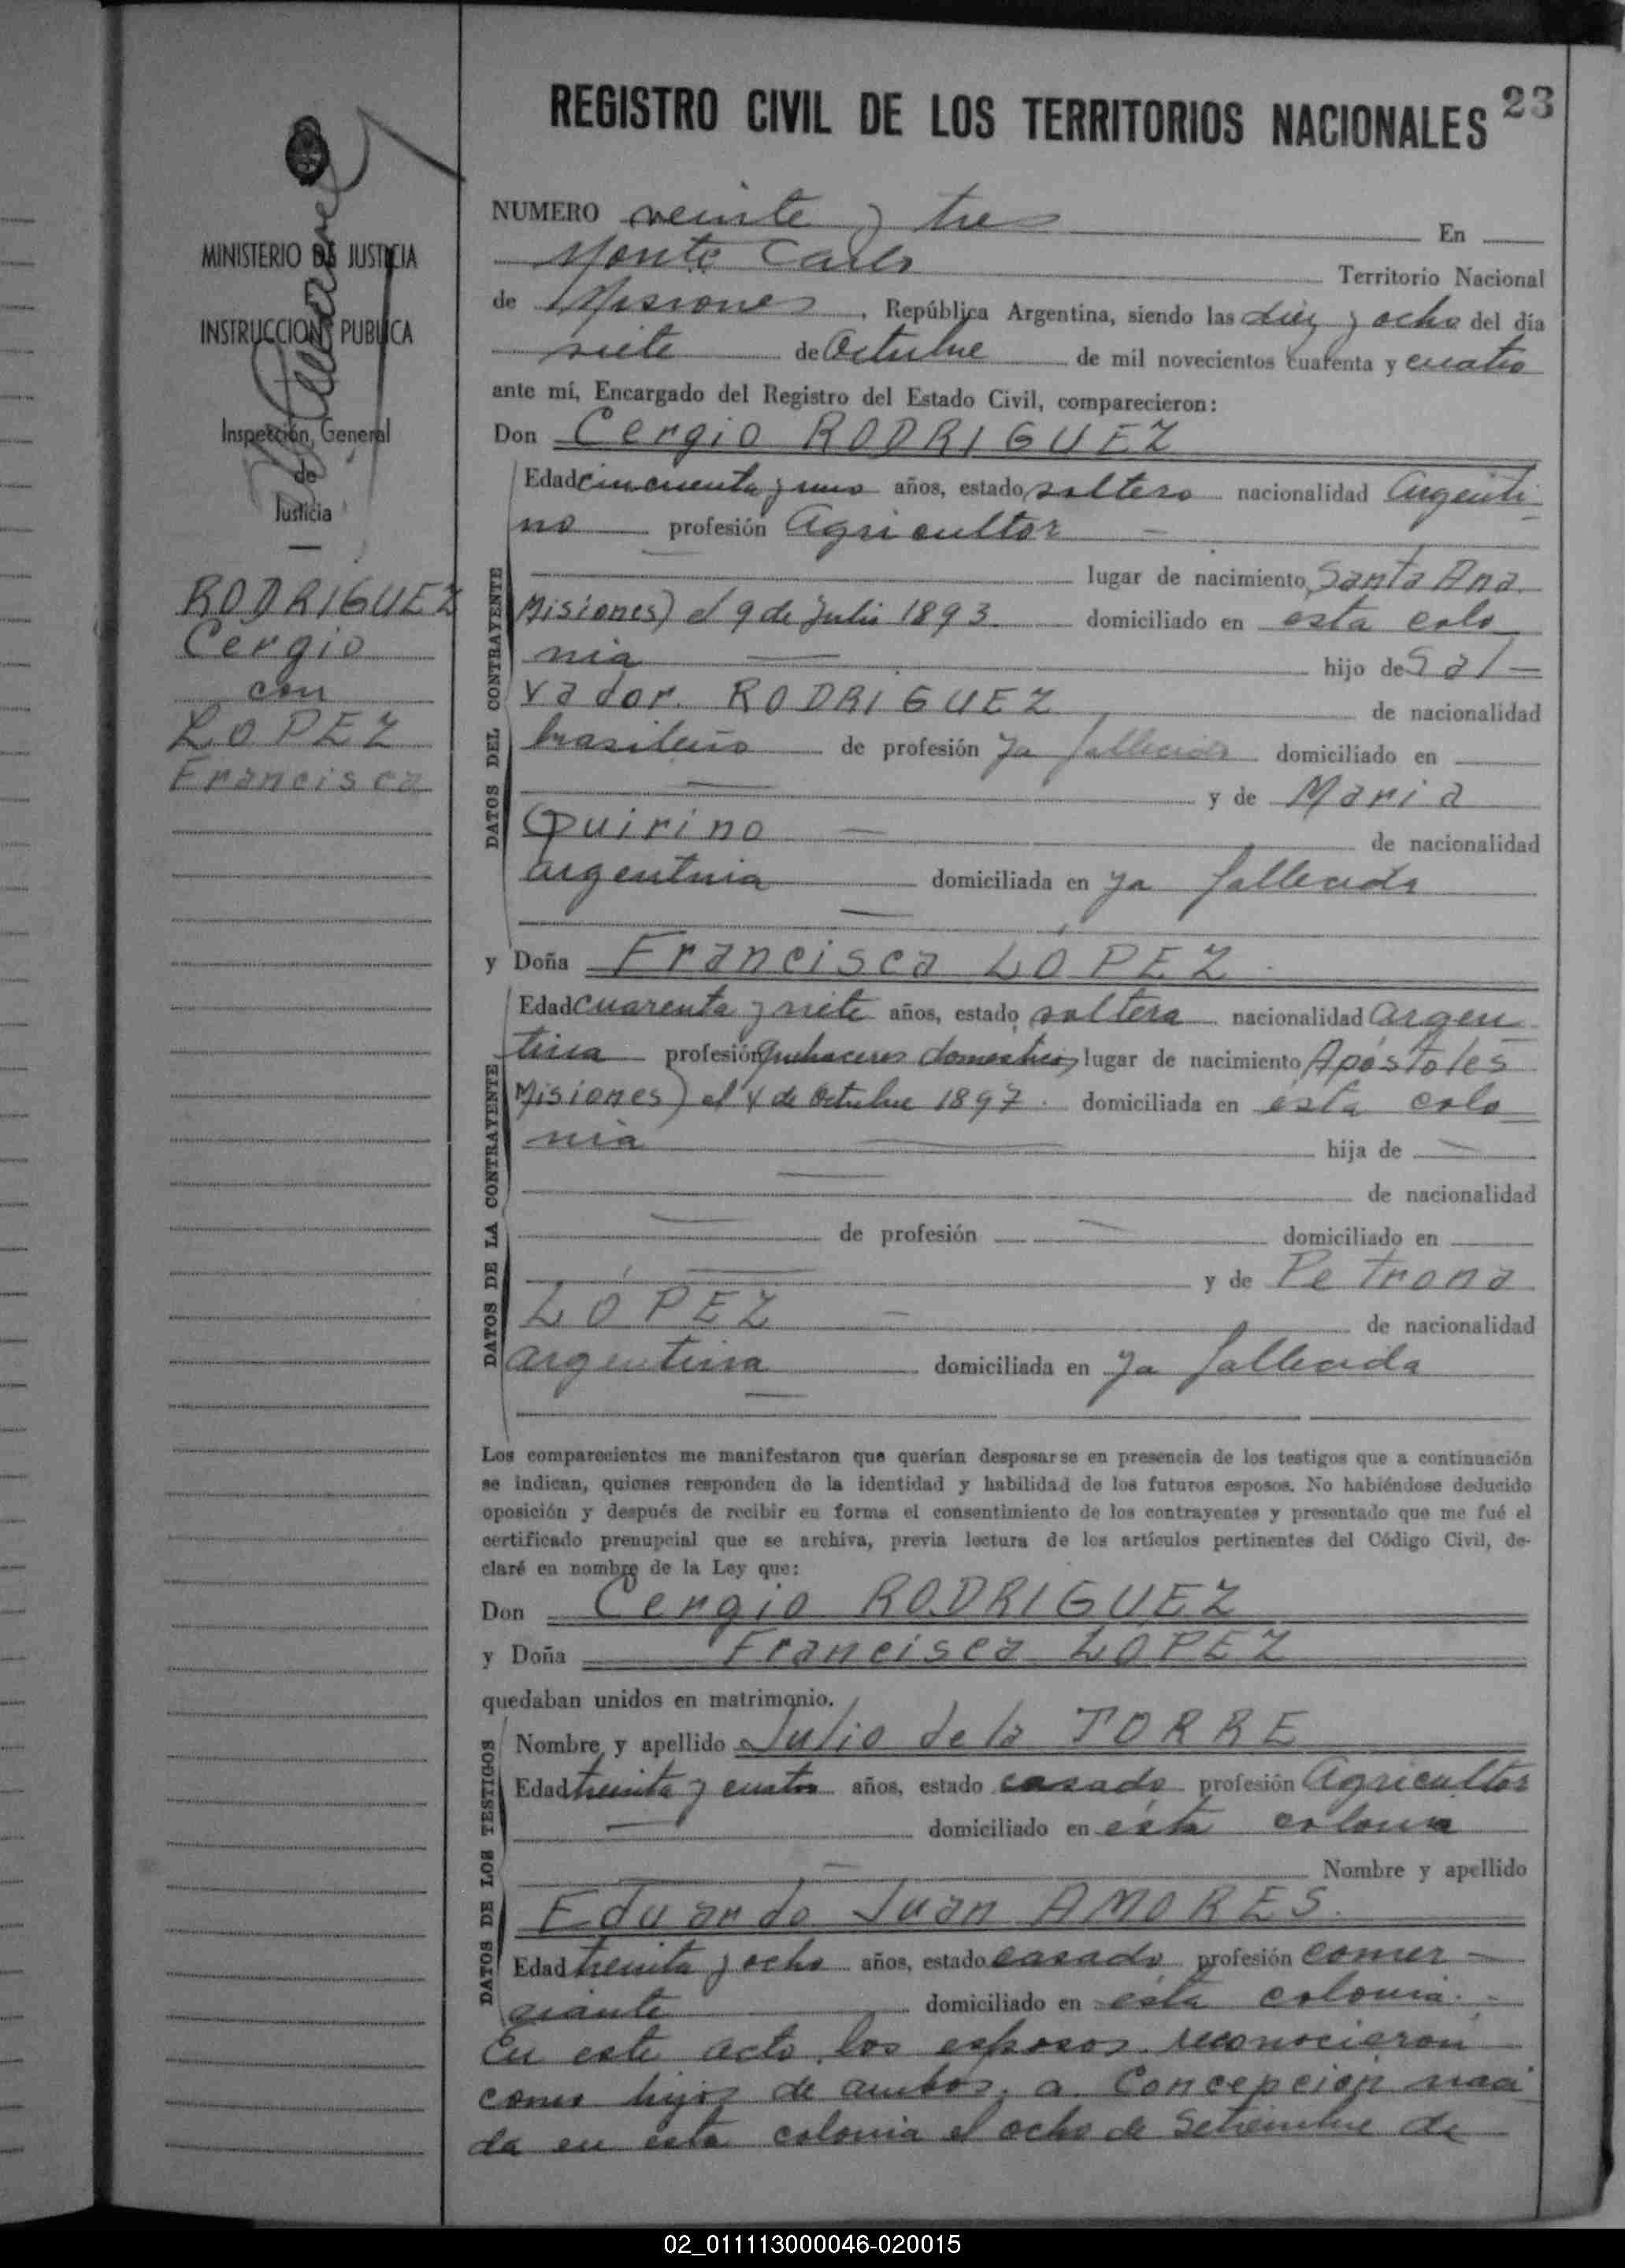 REGISTRO CIVIL DE LOS TERRITORIOS NACIONALES 23
MINISTERIO DE JUSTICIA
INSTRUCCION PUBLICA
Inspección General
de
Justicia
RODRIGUEZ
Cergio
con
LOPEZ
Francisca
NUMERO veinte y tres En
Monte Carlo Territorio Nacional
de Misiones, República Argentina, siendo las diez y ocho del día
siete de Octubre de mil novecientos cuarenta y cuatro
ante mí, Encargado del Registro del Estado Civil, comparecieron:
Don Cergio RODRIGUEZ
DATOS DEL CONTRAYENTE
Edad cincuenta y uno años, estado soltero nacionalidad Argenti
no profesión Agricultor —
lugar de nacimiento Santa Ana
Misiones) el 9 de Julio 1893 domiciliado en esta colo
nia — hijo de Sal-
vador RODRIGUEZ de nacionalidad
brasileño de profesión ya fallecido domiciliado en
— y de Maria
Quirino — de nacionalidad
argentina domiciliada en ya fallecida
—
y Doña Francisca LÓPEZ
DATOS DE LA CONTRAYENTE
Edad cuarenta y siete años, estado soltera nacionalidad argen
tina profesión Quehaceres domesticos lugar de nacimiento Apóstoles
Misiones) el 4 de Octubre 1897. domiciliada en esta colo
nia — hija de —
— de nacionalidad
— de profesión — domiciliado en
— y de Petrona
LÓPEZ — de nacionalidad
argentina domiciliada en ya fallecida
—
Los comparecientes me manifestaron que querían desposarse en presencia de los testigos que a continuación
se indican, quienes responden de la identidad y habilidad de los futuros esposos. No habiéndose deducido
oposición y después de recibir en forma el consentimiento de los contrayentes y presentado que me fué el
certificado prenupcial que se archiva, previa lectura de los artículos pertinentes del Código Civil, de-
claré en nombre de la Ley que:
Don Cergio RODRIGUEZ
y Doña Francisca LÓPEZ
quedaban unidos en matrimonio.
DATOS DE LOS TESTIGOS
Nombre y apellido Julio de la TORRE
Edad treinta y cuatro años, estado casado profesión Agricultor
— domiciliado en esta colonia
— Nombre y apellido
Eduardo Juan AMORES.
Edad treinta y ocho años, estado casado profesión comer-
ciante domiciliado en esta colonia.-
En este acto los esposos reconocieron
como hijos de ambos, a Concepción naci
da en esta colonia el ocho de Setiembre de
02_011113000046-020015